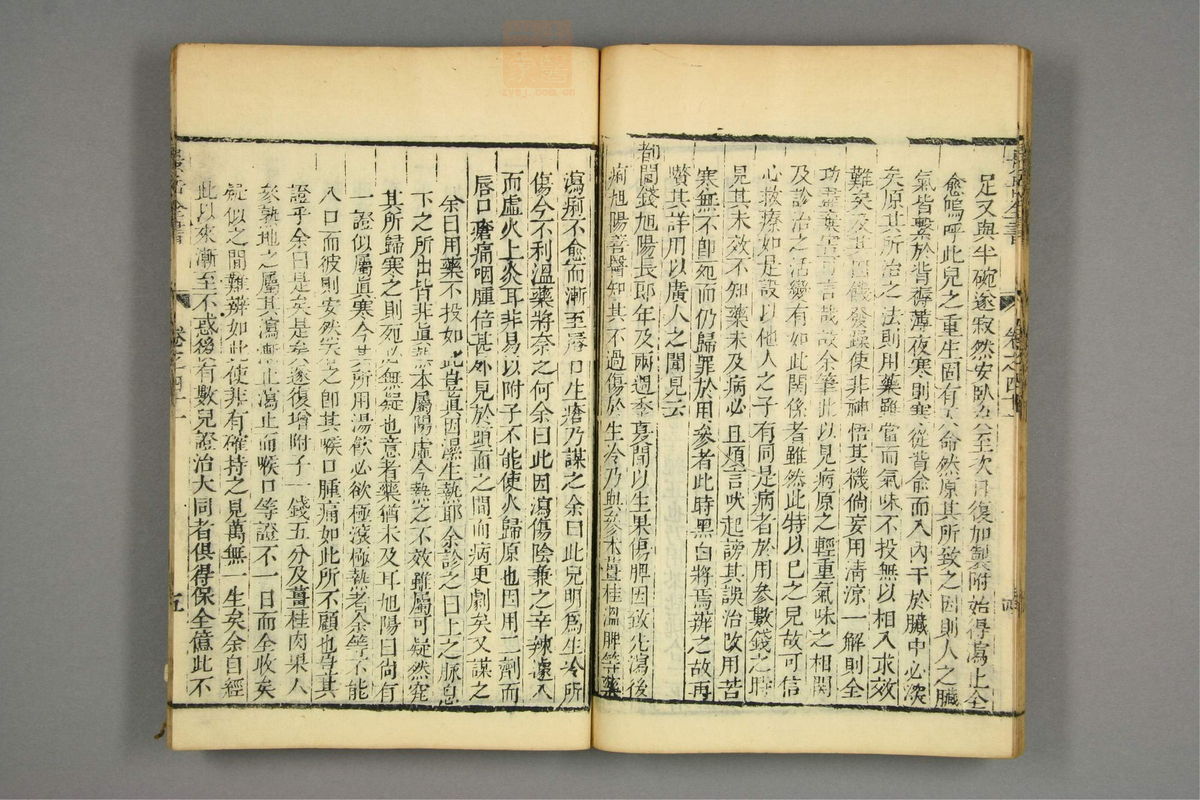 足又與半碗遂寂然安臥至次日復加製附始得瀉止全
愈嗚呼此兒之重生固有天命然原其所致之因則人之臟
氣皆繫於背褥薄夜寒則寒從背俞而入內干於臟中必深
矣原其所治之法則用藥雖當而氣味不投無以相入求效
難矣及其因飢發躁使非神悟其機倘妄用清涼一解則全
功盡棄言哉故余筆此以見病原之輕重氣味之相關
及診治之活變有如此關係者雖然此特以己之兒故可信
心救療如是設以他人之子有同是病者於用參數錢之時
見其未效不知藥未及病必且煩言吠起謗其誤治改用苦
寒無不即死而仍歸罪於用參者此時黑白將焉辨之故再
贅其詳用以廣人之聞見云
都閫錢旭陽長郎年及兩週季夏間以生果傷脾因致先瀉後
痢旭陽善醫知其不過傷於生冷乃與參朮薑桂溫脾等藥
瀉痢不愈而漸至唇口生瘡乃謀之余曰此兒明為生冷所
傷今不利溫藥將奈之何余曰此因瀉傷陰兼之辛辣遽入
而虛火上炎耳非易以附子不能使火歸原也因用二劑而
唇口瘡痛咽腫倍甚外見於頭面之間而病更劇矣又謀之
余曰用藥不投如此豈真因濕生熱耶余診之曰上之脈息
下之所出皆非真熱本屬陽虛今熱之不效雖屬可疑然究
其所歸寒之則死必無疑也意者藥猶未及耳旭陽曰尚有
一證似屬真寒今其所用湯飲必欲極滾極熱者余等不能
入口而彼則安然吞之即其喉口腫痛如此所不顧也豈其
證乎余曰是矣是矣遂復增附子一錢五分及薑桂肉果人
參熟地之屬其瀉漸止瀉止而喉口等證不一日而全收矣
疑似之間難辨如此使非有確持之見萬無一生矣余自經
此以來漸至不惑後有數兒證治大同者俱得保全億此不
卷之四十一
五
zysj.com.cn